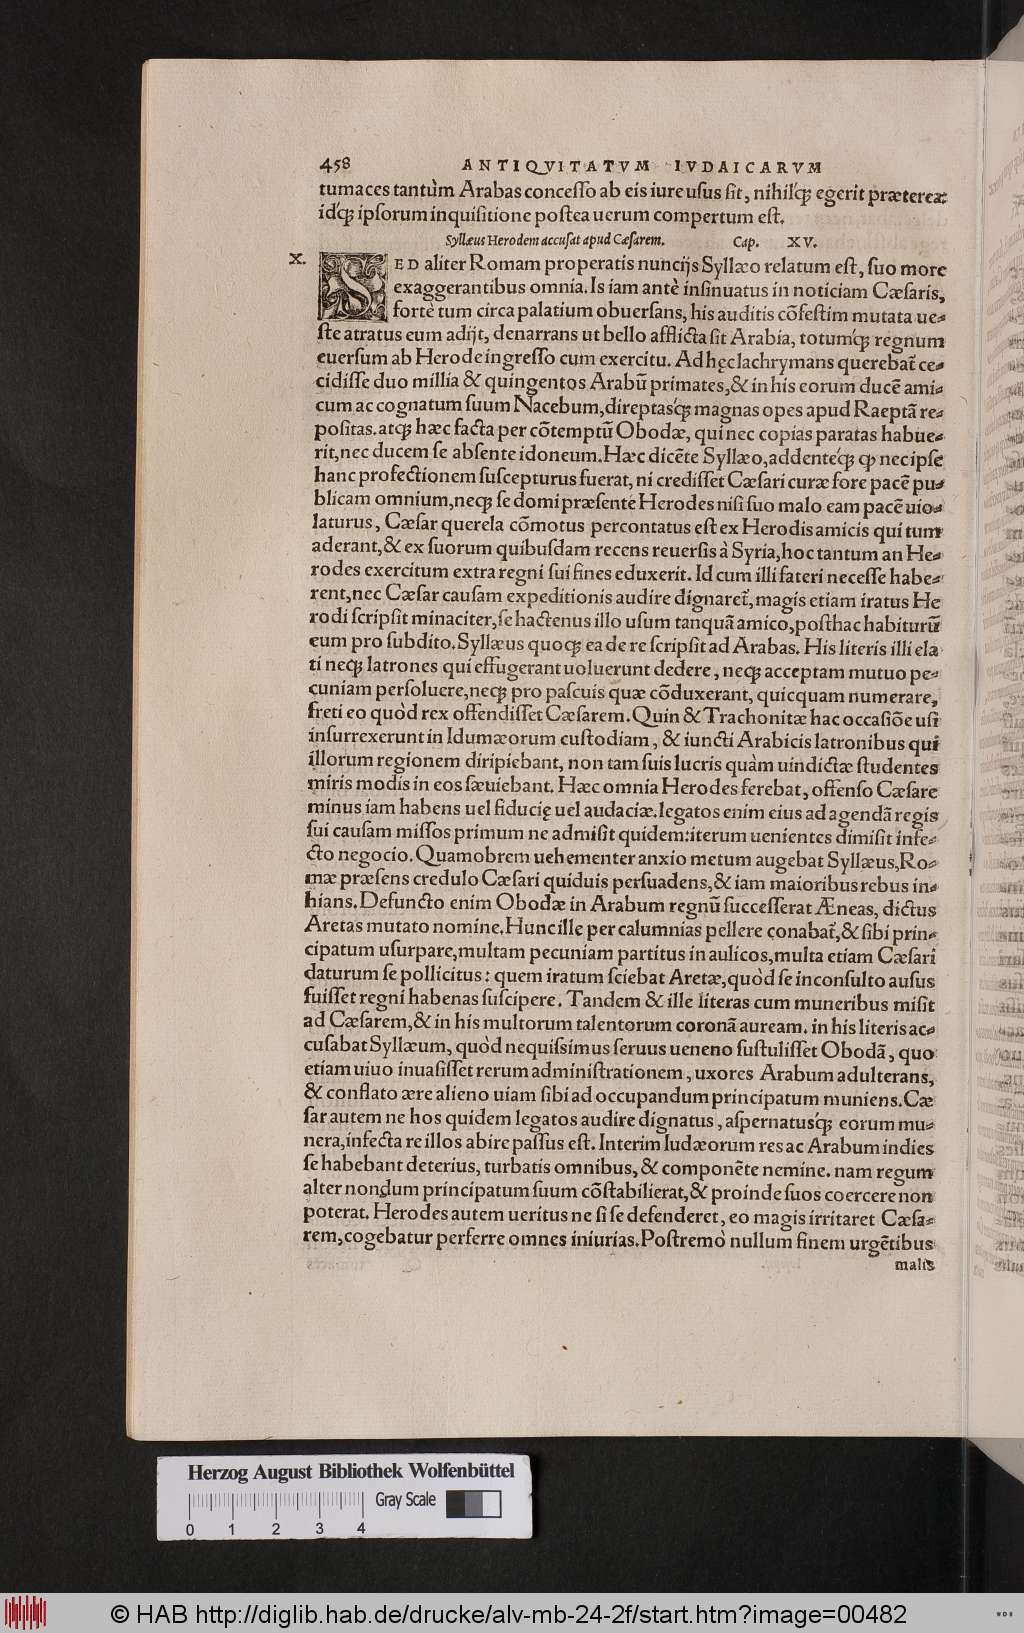 458 ANTIQVITATVM IVDAICARVM
tumaces tantùm Arabas concesso ab eis iure usus sit, nihilq́ꝫ egerit præterea:
idq́ꝫ ipsorum inquisitione postea uerum compertum est.
Syllæus Herodem accusat apud Cæsarem. Cap. XV.
X. SED aliter Romam properatis nuncijs Syllæo relatum est, suo more
exaggerantibus omnia. Is iam antè insinuatus in noticiam Cæsaris,
fortè tum circa palatium obuersans, his auditis cõfestim mutata ue-
ste atratus eum adijt, denarrans ut bello afflicta sit Arabia, totumq́ꝫ regnum
euersum ab Herode ingresso cum exercitu. Ad hęc lachrymans querebat̃ ce-
cidisse duo millia & quingentos Arabũ primates, & in his eorum ducẽ ami-
cum ac cognatum suum Nacebum, direptasq́ꝫ magnas opes apud Raeptã re-
positas. atqꝫ hæc facta per cõtemptũ Obodæ, qui nec copias paratas habue-
rit, nec ducem se absente idoneum. Hæc dicẽte Syllæo, addenteq́ꝫ ꝙ nec ipse
hanc profectionem suscepturus fuerat, ni credisset Cæsari curæ fore pacẽ pu-
blicam omnium, neqꝫ se domi præsente Herodes nisi suo malo eam pacẽ uio-
laturus, Cæsar querela cõmotus percontatus est ex Herodis amicis qui tum
aderant, & ex suorum quibusdam recens reuersis à Syria, hoc tantum an He-
rodes exercitum extra regni sui fines eduxerit. Id cum illi fateri necesse habe-
rent, nec Cæsar causam expeditionis audire dignaret̃, magis etiam iratus He
rodi scripsit minaciter, se hactenus illo usum tanquã amico, posthac habiturũ
eum pro subdito. Syllæus quoqꝫ ea de re scripsit ad Arabas. His literis illi ela
ti neqꝫ latrones qui effugerant uoluerunt dedere, neqꝫ acceptam mutuo pe-
cuniam persoluere, neqꝫ pro pascuis quæ cõduxerant, quicquam numerare,
freti eo quòd rex offendisset Cæsarem. Quin & Trachonitæ hac occasiõe usi
insurrexerunt in Idumæorum custodiam, & iuncti Arabicis latronibus qui
illorum regionem diripiebant, non tam suis lucris quàm uindictæ studentes
miris modis in eos sæuiebant. Hæc omnia Herodes ferebat, offenso Cæsare
minus iam habens uel fiducię uel audaciæ. legatos enim eius ad agendã regis
sui causam missos primum ne admisit quidem: iterum uenientes dimisit infe-
cto negocio. Quamobrem uehementer anxio metum augebat Syllæus, Ro-
mæ præsens credulo Cæsari quiduis persuadens, & iam maioribus rebus in-
hians. Defuncto enim Obodæ in Arabum regnũ successerat Æneas, dictus
Aretas mutato nomine. Hunc ille per calumnias pellere conabat̃, & sibi prin-
cipatum usurpare, multam pecuniam partitus in aulicos, multa etiam Cæsari
daturum se pollicitus: quem iratum sciebat Aretæ, quòd se inconsulto ausus
fuisset regni habenas suscipere. Tandem & ille literas cum muneribus misit
ad Cæsarem, & in his multorum talentorum coronã auream. in his literis ac-
cusabat Syllæum, quòd nequissimus seruus ueneno sustulisset Obodã, quo
etiam uiuo inuasisset rerum administrationem, uxores Arabum adulterans,
& conflato ære alieno uiam sibi ad occupandum principatum muniens. Cæ
sar autem ne hos quidem legatos audire dignatus, aspernatusq́ꝫ eorum mu-
nera, infecta re illos abire passus est. Interim Iudæorum res ac Arabum indies
se habebant deterius, turbatis omnibus, & componẽte nemine. nam regum
alter nondum principatum suum cõstabilierat, & proinde suos coercere non
poterat. Herodes autem ueritus ne si se defenderet, eo magis irritaret Cæsa-
rem, cogebatur perferre omnes iniurias. Postremò nullum finem urgẽtibus
malis
Herzog August Bibliothek Wolfenbüttel
Gray Scale
0 1 2 3 4
© HAB http://diglib.hab.de/drucke/alv-mb-24-2f/start.htm?image=00482